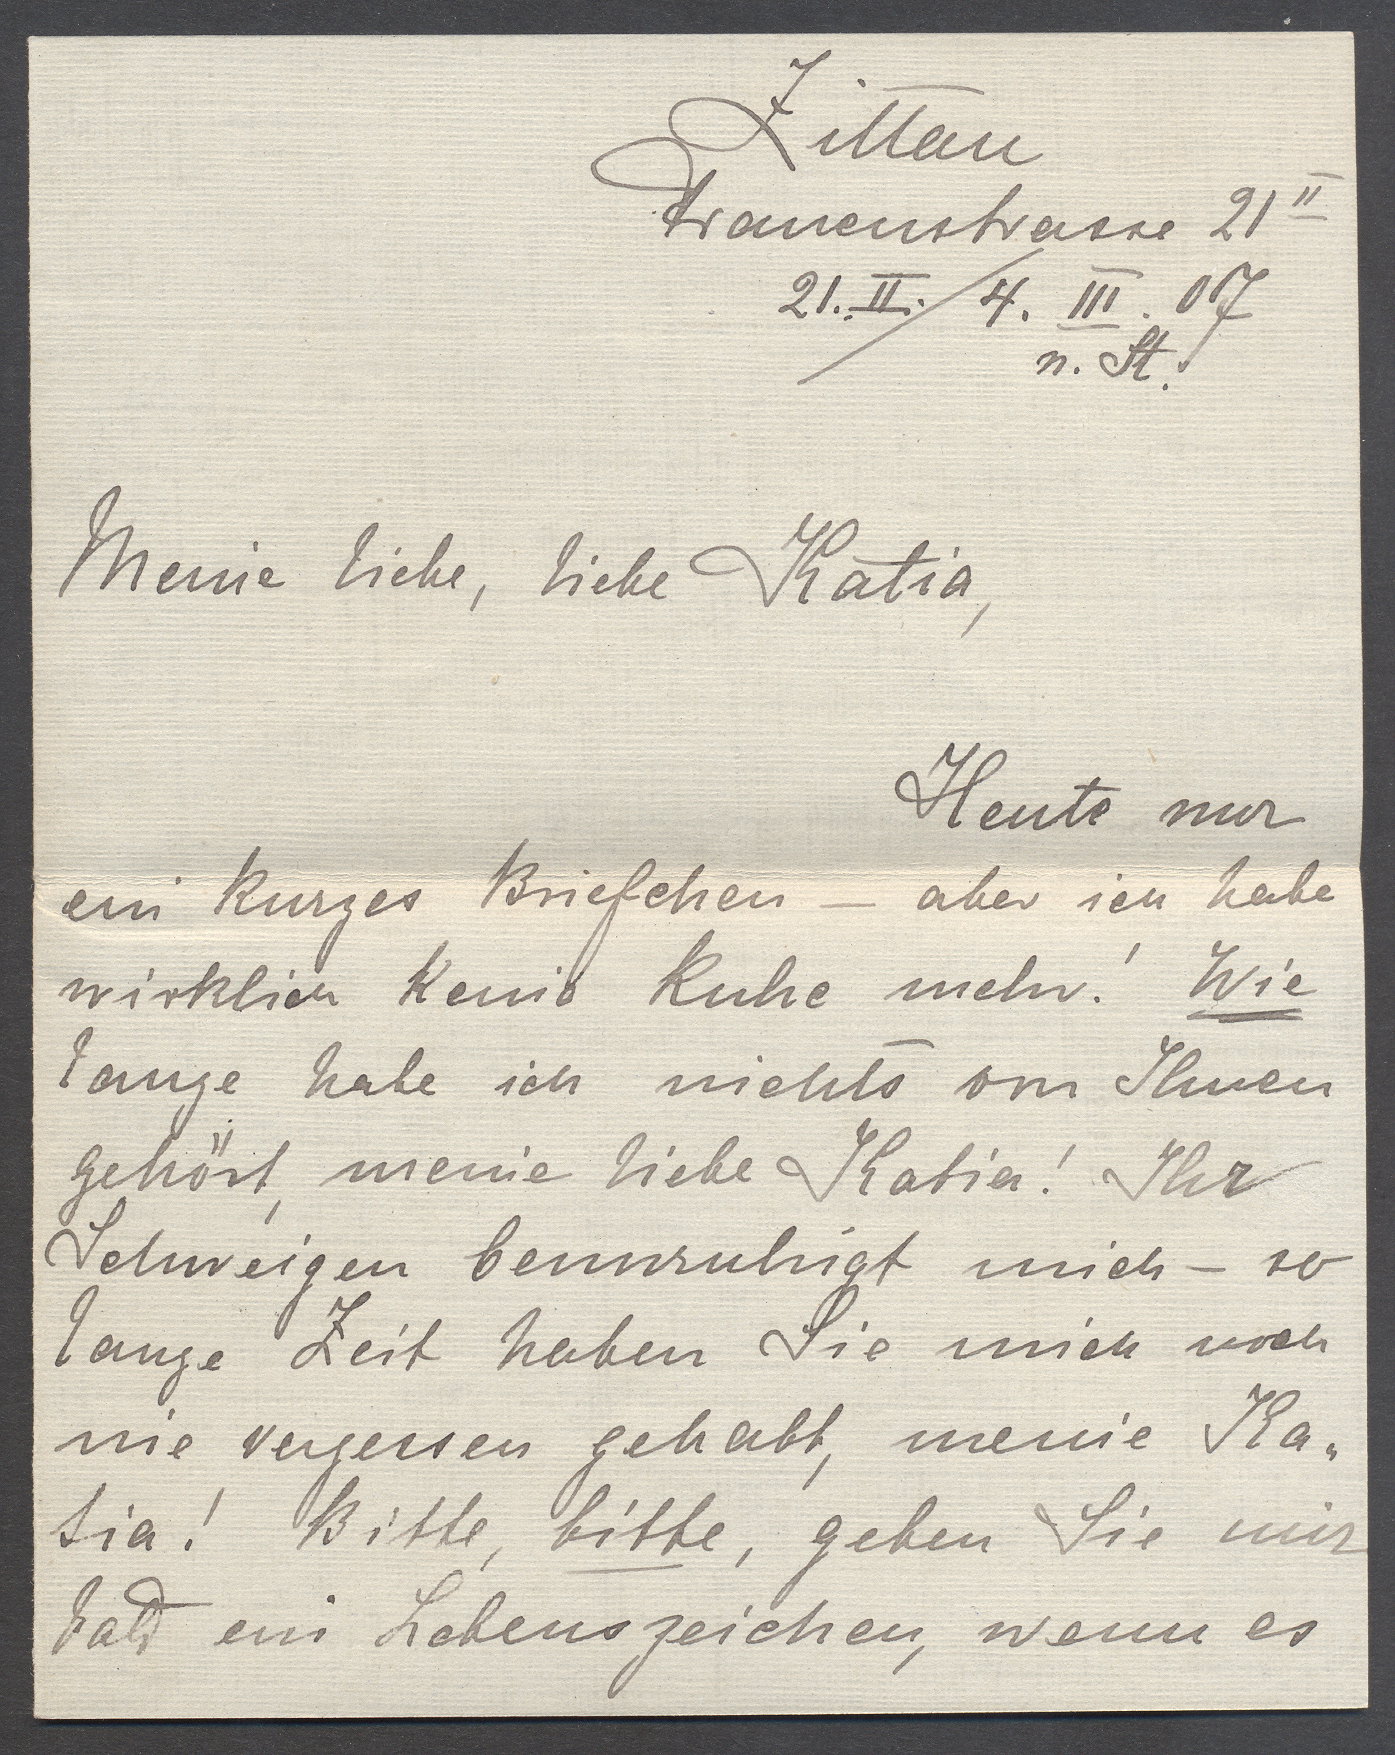 Zittau
Frauenstrasse 21 II
21. II. / 4. III. 07
n. St.
Meine liebe, liebe Katia,
Heute nur
ein kurzes Briefchen – aber ich habe
wirklich keine Ruhe mehr! Wie
lange habe ich nichts von Ihnen
gehört, meine liebe Katia! Ihr
Schweigen beunruhigt mich – so
lange Zeit haben Sie mich noch
nie vergessen gehabt, meine Ka„
tia! Bitte, bitte, geben Sie mir
bald ein Lebenszeichen, wenn es